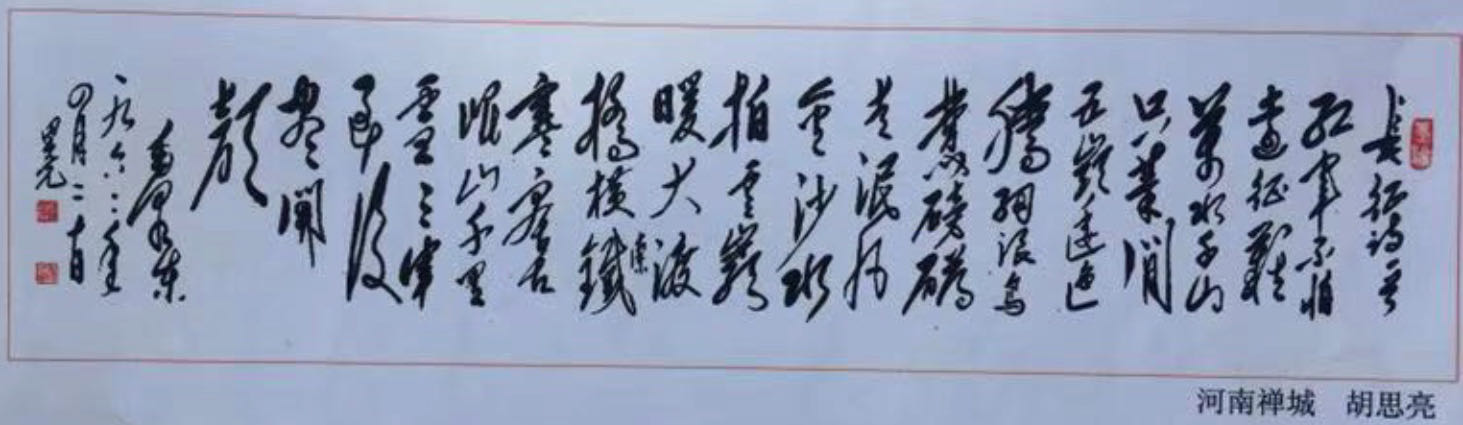 长征诗一首
红軍不怕
遠征難
萬水千山
只等閒
五嶺逶迤
騰細浪烏
蒙磅礴
走泥丸
金沙水
拍雲崖
暖大渡
橋橫鐵索
寒更喜
岷山千里
雪三軍
過後
盡開
顏
毛澤東
一九六二年
四月二十日
思亮
河南禅城 胡思亮